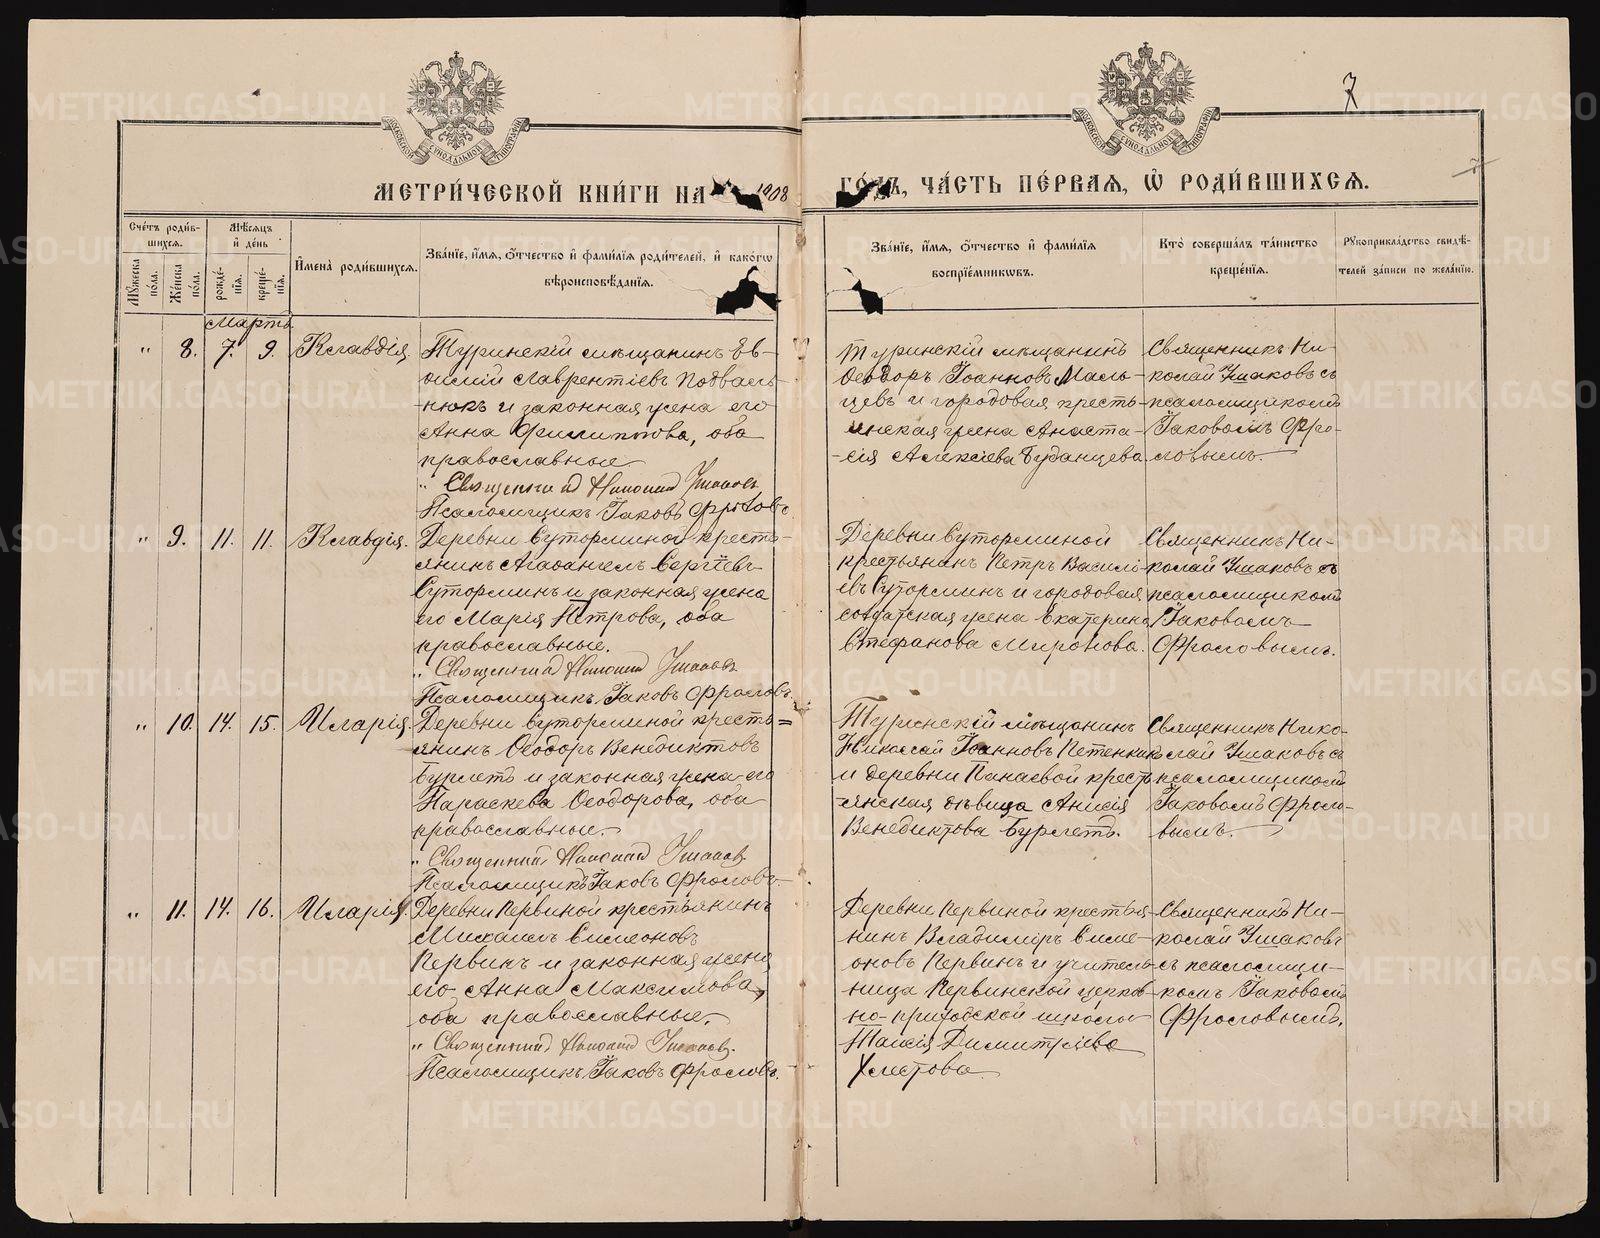 7
МЕТРИ́ЧЕСКОЙ КНИ́ГИ НА 1908 ГО́ДЪ, ЧА́СТЬ ПЕ́РВАЯ, Ѡ҆ РОДИ́ВШИХСЯ.
Сче́тъ роди́в-
шихся.
Му́жеска по́ла.
Же́нска по́ла.
Мѣ́сяцъ и҆ де́нь
рожде́-
нїя.
креще́-
нїя.
И҆мена̀ роди́вшихся.
Зва́нїе, и҆́мя, о҆́тчество и҆ фами́лїя роди́телей, и҆ како́гѡ
вѣроисповѣ́данїя.
Зва́нїе, и҆́мя, о҆́тчество и҆ фами́лїя
воспрїе́мникѡвъ.
Кто̀ соверша́лъ та́инство
креще́нїя.
Рꙋкоприкла́дство свидѣ́-
телей за́писи по жела́нїю.
Мартъ
" 8. 7. 9. Клавдія
Туринскій мѣщанинъ Ев-
Лаврентіевъ Подваль-
нюкъ и законная жена его
Анна Филиппова, оба
православные.
" Священникъ Николай Ушаковъ
Псаломщикъ Іаковъ Фроловъ.
Туринскій мѣщанинъ
Ѳеодоръ Іоанновъ Маль-
цевъ и городовая кресть-
янская жена Анаста-
-сія Алексіева Буданцева.
Священникъ Ни-
колай Ушаковъ съ
псаломщикомъ
Іаковомъ Фро-
ловымъ.
" 9. 11. 11. Клавдія.
Деревни Суторминой кресть-
янинъ Агаѳангелъ Сергіевъ
Суторминъ и законная жена
его Марія Петрова, оба
православные.
" Священникъ Николай Ушаковъ
Псаломщикъ Іаковъ Фроловъ.
Деревни Суторминой
крестьянинъ Петръ Василі-
евъ Суторминъ и городовая
солдатская жена Екатерина
Стефанова Миронова.
Священникъ Ни-
колай Ушаковъ съ
псаломщикомъ
Іаковомъ
Фроловымъ.
" 10. 14. 15. Иларія.
Деревни Суторминой кресть=
янинъ Ѳеодоръ Венедиктовъ
Бурлетъ и законная жена его
Параскева Ѳеодорова, оба
православные.
" Священникъ Николай Ушаковъ
Псаломщикъ Іаковъ Фроловъ.
Туринскій мѣщанинъ
Николай Іоанновъ Петенкинъ
и деревни Панаевой кресть-
-янская дѣвица Анисія
Венедиктова Бурлетъ.
Священникъ Нико-
лай Ушаковъ съ
псаломщикомъ
Іаковомъ Фроло-
вымъ.
" 11. 14. 16. Иларія.
Деревни Первиной крестьянинъ
Михаилъ Симеоновъ
Первинъ и законная жена
его Анна Максимова,
оба православные.
" Священникъ Николай Ушаковъ.
Псаломщикъ Іаковъ Фроловъ.
Деревни Первиной крестья-
нинъ Владиміръ Симе-
оновъ Первинъ и учитель-
ница Первинской церков-
но-приходской школы
Таисія Димитріева
Хлестова.
Священникъ Ни-
колай Ушаковъ
съ псаломщи-
комъ Іаковомъ
Фроловымъ.
METRIKI.GASO-URAL.RU